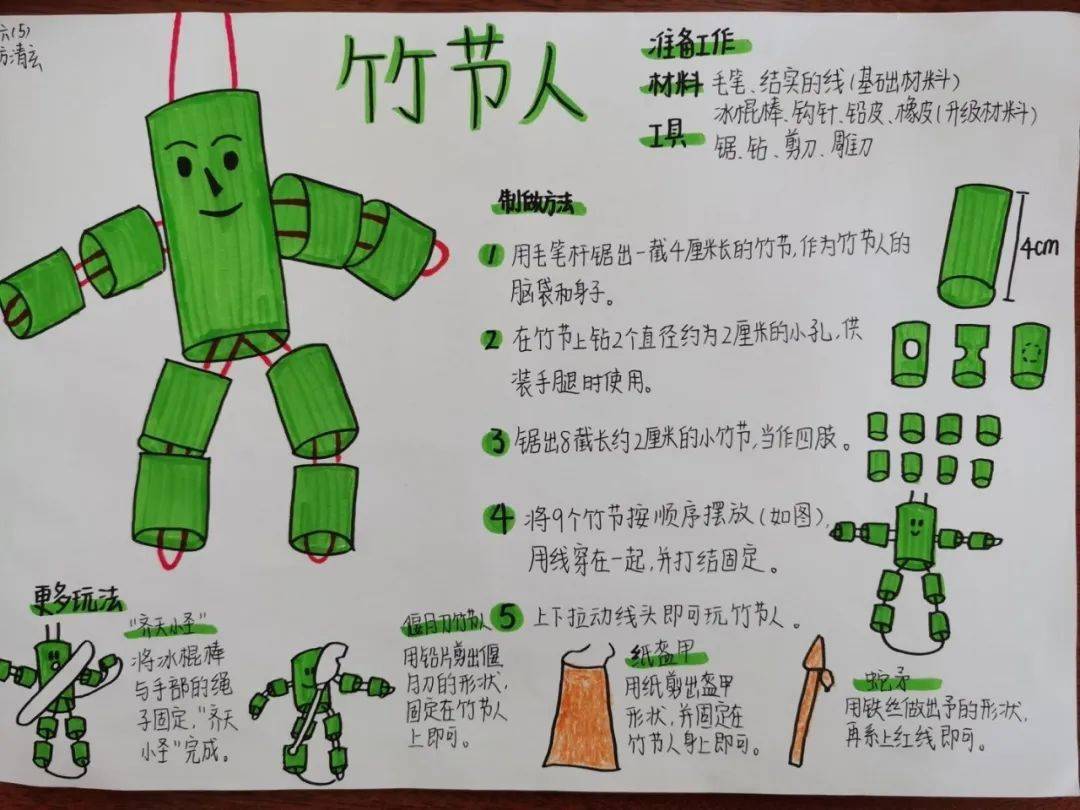 六(5)
清玄
竹节人
准备工作
材料 毛笔、结实的线(基础材料)
冰棍棒、钩针、铅皮、橡皮(升级材料)
工具 锯、钻、剪刀、雕刀
制做方法
1 用毛笔杆锯出一截4厘米长的竹节,作为竹节人的
脑袋和身子。
4cm
2 在竹节上钻2个直径约为2厘米的小孔,供
装手腿时使用。
3 锯出8截长约2厘米的小竹节,当作四肢。
4 将9个竹节按顺序摆放(如图),
用线穿在一起,并打结固定。
5 上下拉动线头即可玩竹节人。
更多玩法
"齐天小圣"
将冰棍棒
与手部的绳
子固定,"齐天
小圣"完成。
偃月刀竹节人
用铅片剪出偃
月刀的形状,
固定在竹节人
上即可。
纸盔甲
用纸剪出盔甲
形状,并固定在
竹节人身上即可。
蛇矛
用铁丝做出予的形状,
再系上红线即可。